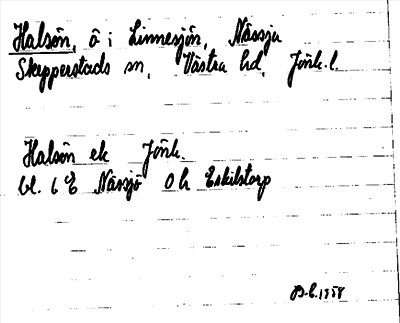 Halsön, ö i Linnesjön, Nässja
Skepperstads sn, Västra hd, Jönk. l.
Halsön ek Jönk.
bl. 6 E Nässjö 0 h Eskilstorp
B.E. 1958